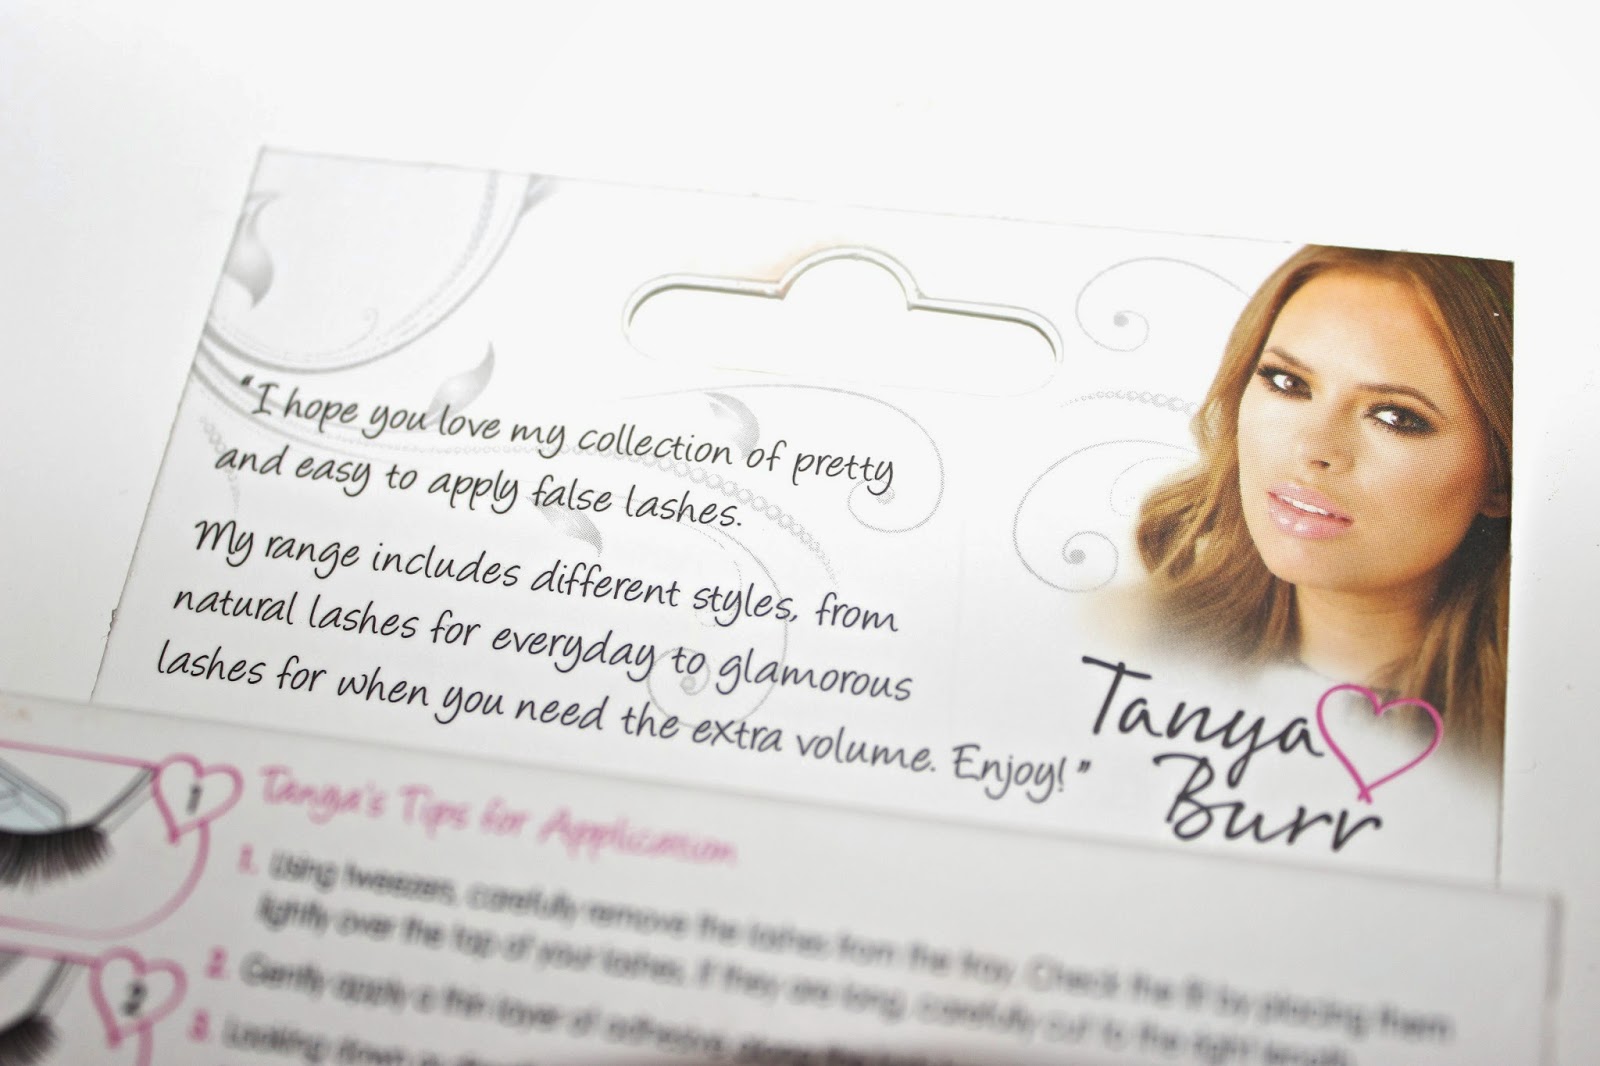 "I hope you love my collection of pretty
and easy to apply false lashes.
My range includes different styles, from
natural lashes for everyday to glamorous
lashes for when you need the extra volume. Enjoy!"
Tanya
Burr
1
Tanya's Tips for Application
1. Using tweezers, carefully remove the lashes from the tray. Check the fit by placing them
lightly over the top of your lashes, if they are long, carefully cut to the right length.
2
2. Gently apply a thin layer of adhesive along the
3. Looking down